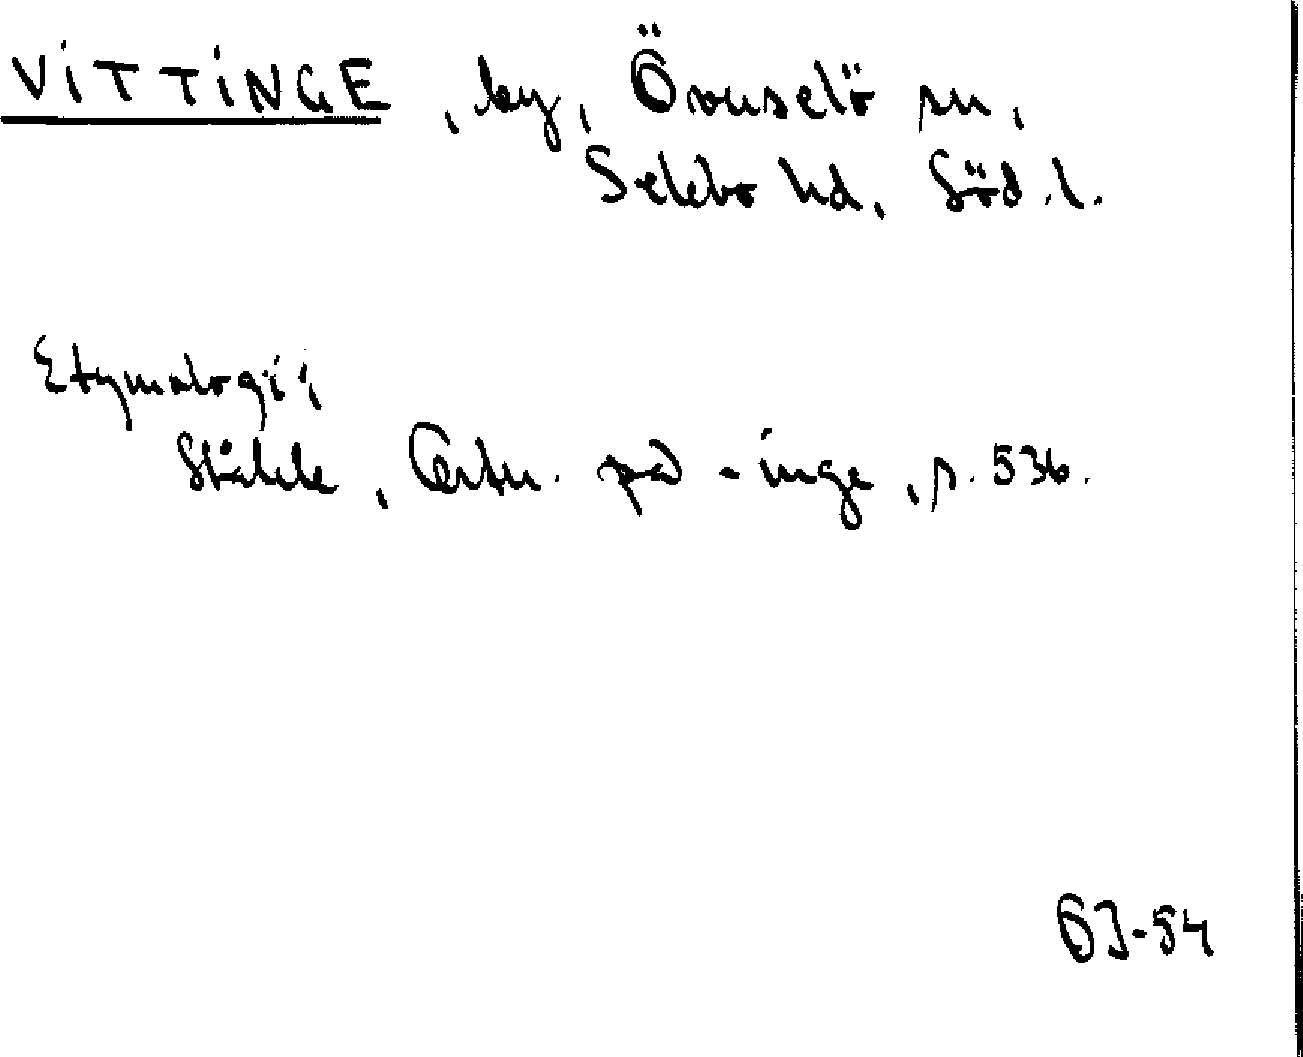 VITTINGE, by, Överselö sn,
Selebo hd, Söd.l.
Etymologi;
Ståhle, Ortn. på -inge, s. 536.
GJ-54